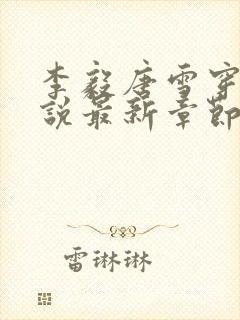 李毅唐雪穿
说最新章节
雷琳琳